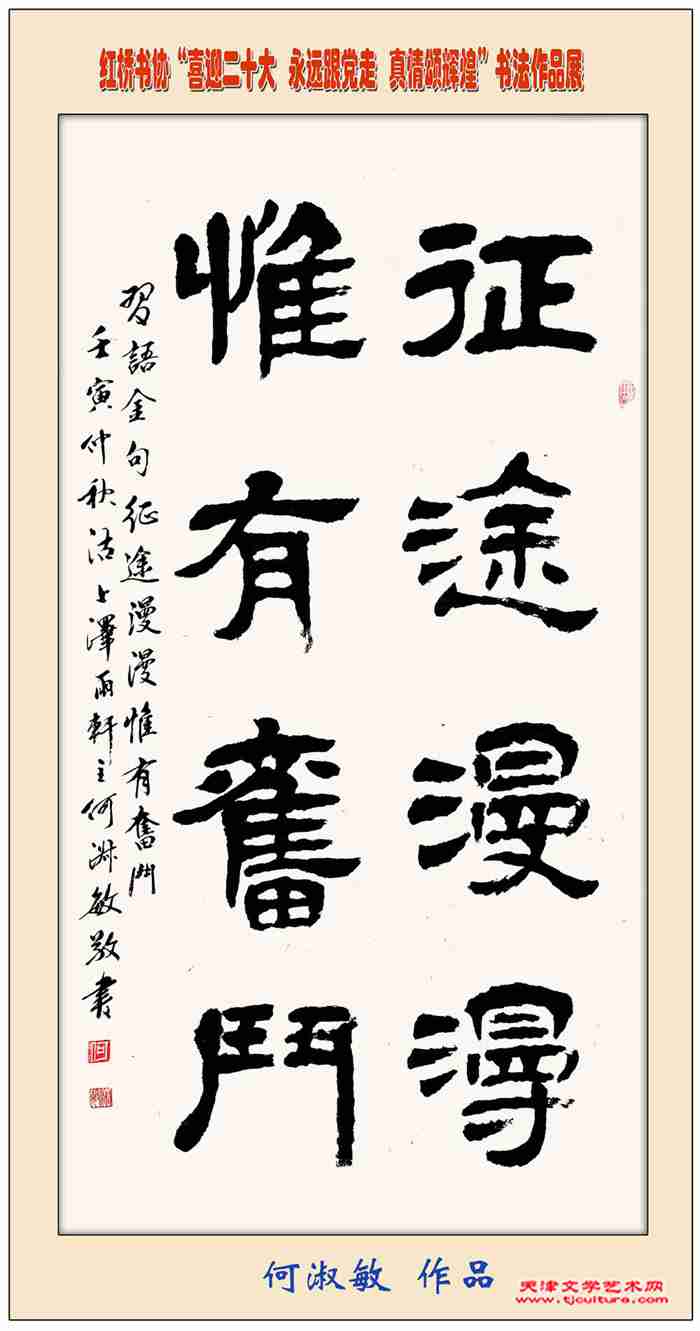 红桥书协“喜迎二十大 永远跟党走 真情颂辉煌”书法作品展
征途漫漫
惟有奮鬥
習語金句征途漫漫惟有奮鬥
壬寅仲秋沽上澤雨軒主何淑敏敬書
何淑敏 作品
天津文学艺术网
www.tjculture.com